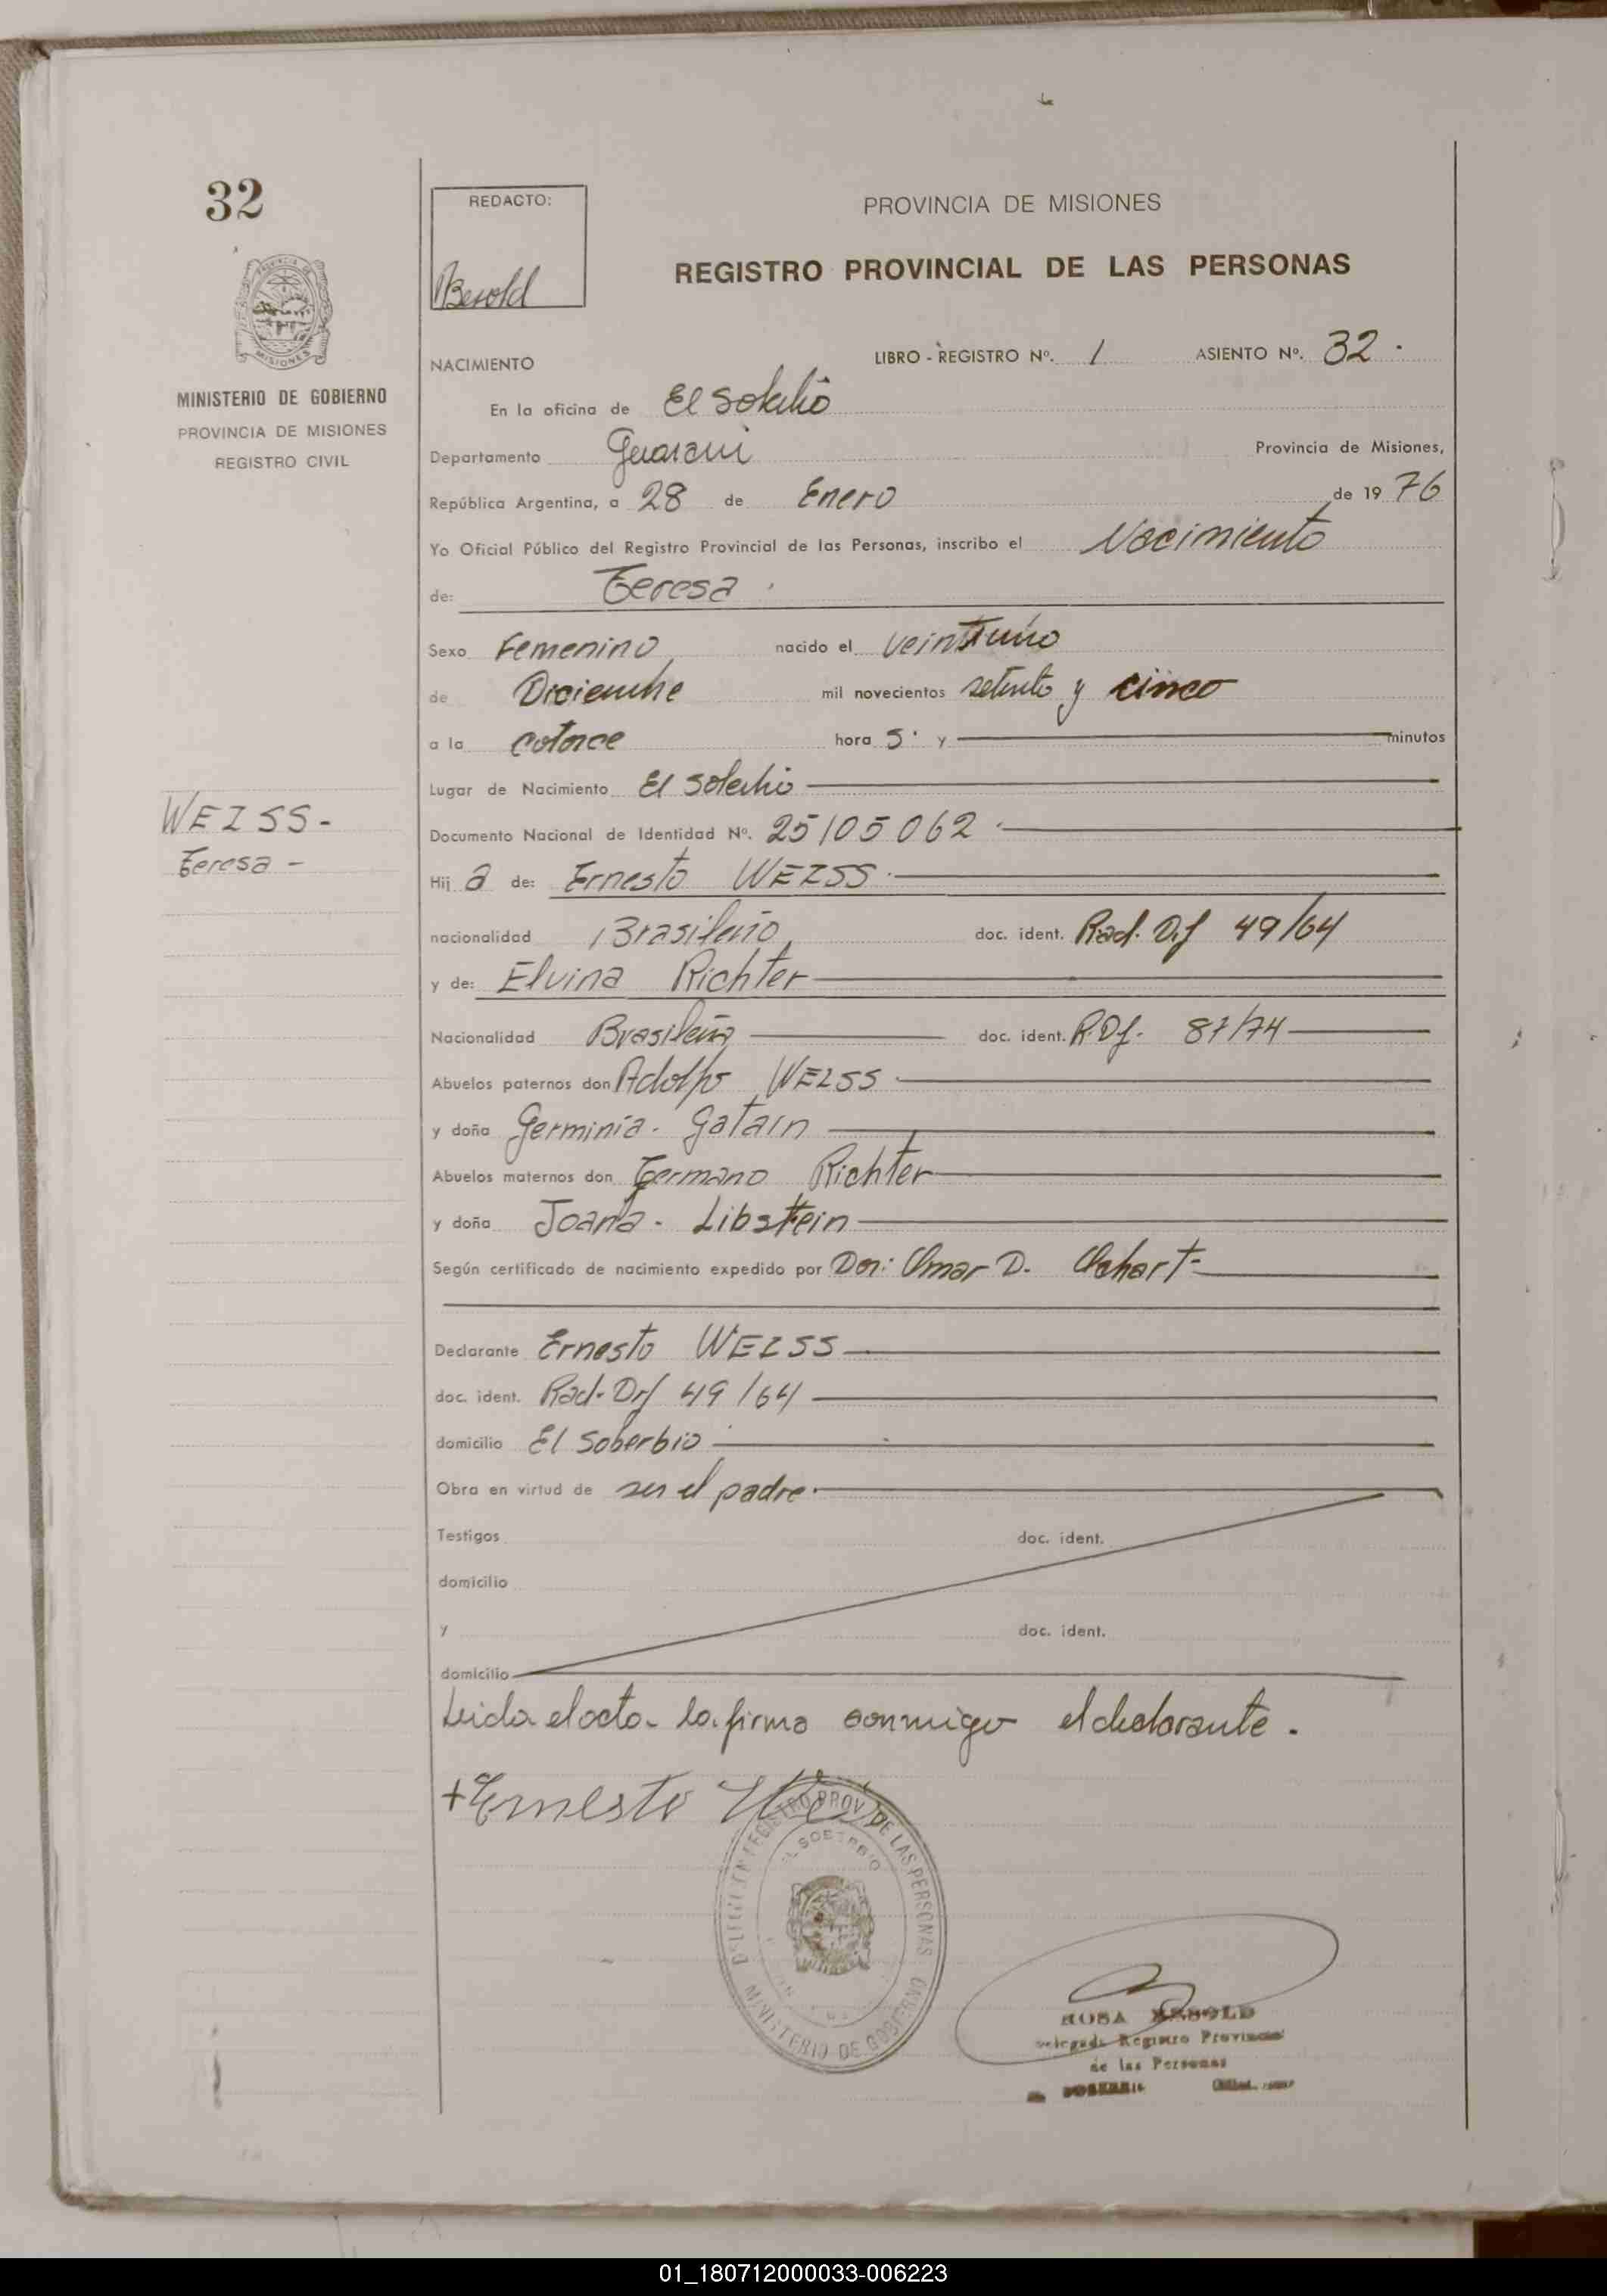 32
REDACTO:
Besold
PROVINCIA DE MISIONES
REGISTRO PROVINCIAL DE LAS PERSONAS
MISIONES
MINISTERIO DE GOBIERNO
PROVINCIA DE MISIONES
REGISTRO CIVIL
NACIMIENTO
LIBRO - REGISTRO Nº. 1 ASIENTO Nº. 32.
En la oficina de El Soberbio
Departamento Guarani Provincia de Misiones,
República Argentina, a 28 de Enero de 1976
Yo Oficial Público del Registro Provincial de las Personas, inscribo el Nacimiento
de: Teresa.
Sexo Femenino nacido el veintiuno
de Diciembre mil novecientos setenta y cinco
a la catorce hora S. y minutos
Lugar de Nacimiento El Soberbio
WEISS-
Teresa-
Documento Nacional de Identidad Nº. 25105062.
Hij a de: Ernesto WEISS.
nacionalidad Brasileño, doc. ident. Rad. Df 49/64
y de: Elvina Richter
Nacionalidad Brasileña doc. ident. R.Df. 87/74
Abuelos paternos don Adolfo WEISS.
y doña Germinia. Gatain
Abuelos maternos don Germano Richter
y doña Joana. Libstein
Según certificado de nacimiento expedido por Don: Omar D.
Declarante Ernesto WEISS
doc. ident. Rad. Df 49/64
domicilio El Soberbio
Obra en virtud de ser el padre.
Testigos doc. ident.
domicilio
y doc. ident.
domicilio
Leida el acta la firma conmigo el declarante.
+Ernesto
REGISTRO PROV. DE LAS PERSONAS
EL SOBERBIO
MINISTERIO DE GOBIERNO
ROSA BESOLD
Delegada Registro Provincial
de las Personas
01_180712000033-006223